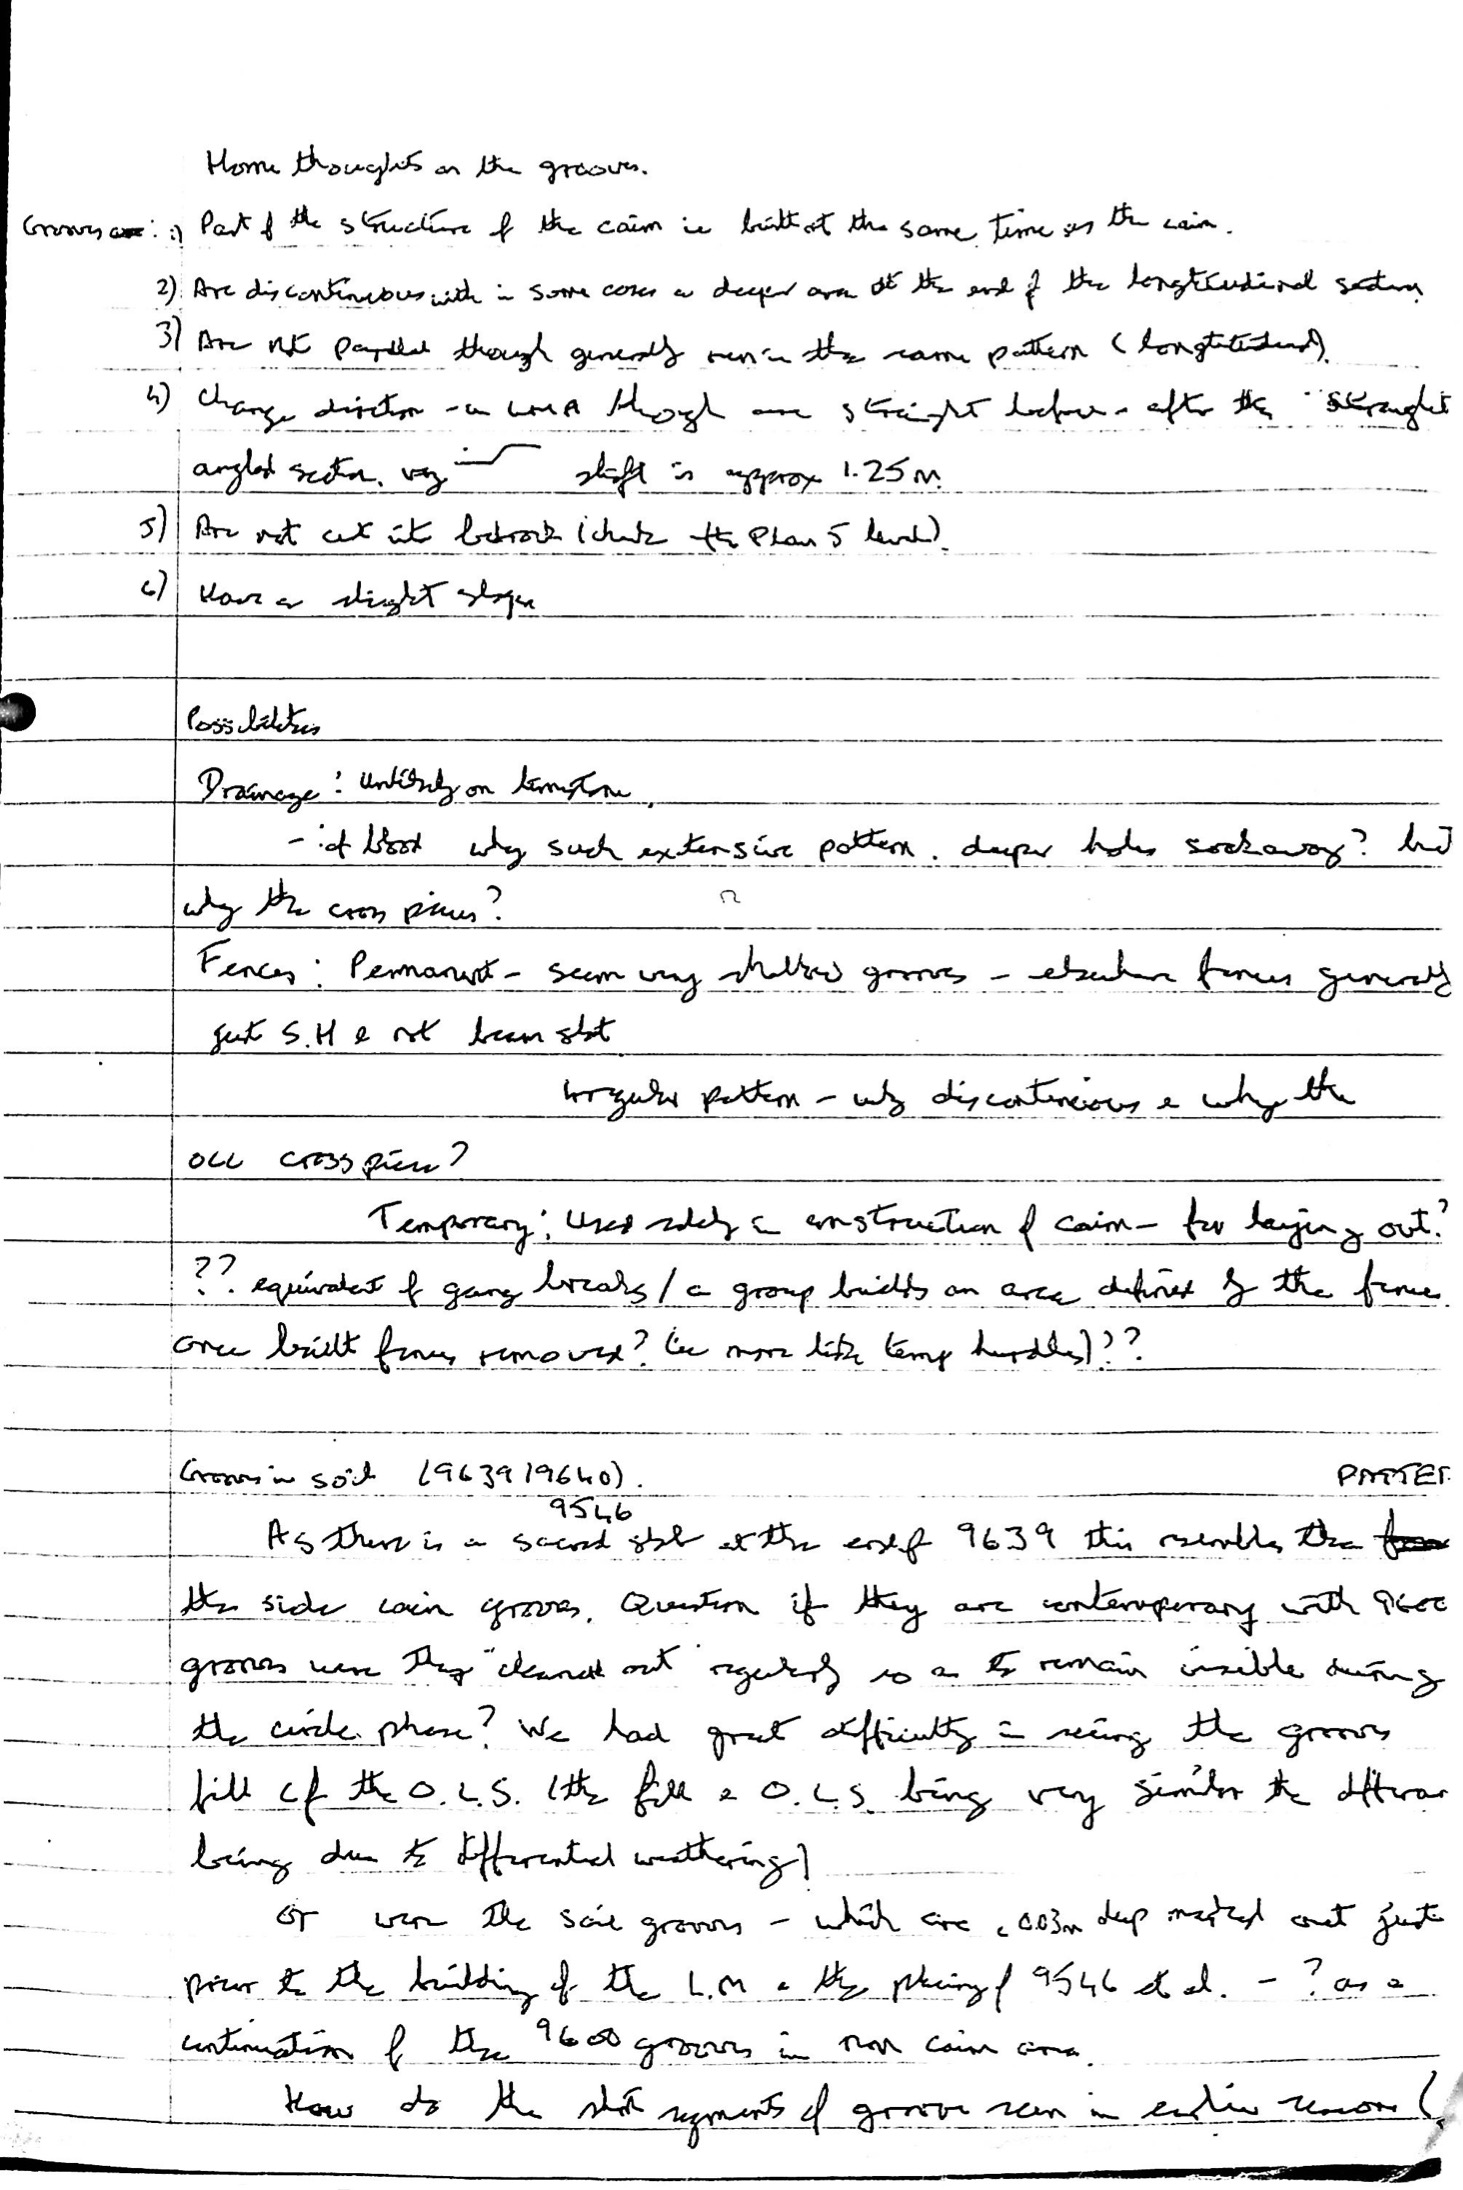 Home thoughts on the grooves.
Grooves are: 1) Part of the structure of the cairn ie built at the same time as the cairn.
2) Are discontinuous with in some cases a deeper area at the end of the longtitudinal section
3) Are not parallel though generally run in the same pattern (longtitudinal).
4) Change direction - in though are straight before - after the straight
angled section. shift is approx 1.25m.
5) Are not cut into bedrock (check the Phase 5 level).
6) Have a slight slope
Possibilities
Drainage: Unlikely on limestone.
- if blood why such extensive pattern. deeper holes soakaway? but
why the cross pieces?
Fences: Permanent - seem very shallow grooves - elsewhere fences generally
just S.H & not beam slot
Irregular pattern - why discontinuous & why the
occ cross piece?
Temporary: Used solely in construction of cairn - for laying out?
?? equivalent of gang breaks / a group builds an area defined by the fence
once built fences removed? (ie more like temp hurdles)??
Grooves in soil (9639/9640). PATTER
9546
As there is a second slot at the end of 9639 this resembles the
the side cairn grooves. Question if they are contemporary with 9600
grooves were they "cleaned out" regularly so as to remain visible during
the circle phase? We had great difficulty in seeing the grooves
fill cf the O.L.S. (the fill & O.L.S. being very similar the differan
being due to differential weathering)
or were the soil grooves - which are c 0.03m deep marked out just
prior to the building of the L.M & the placing of 9546 et al. - ? as a
continuation of the 9600 grooves in non cairn area.
How do the slot segments of groove seen in earlier seasons (